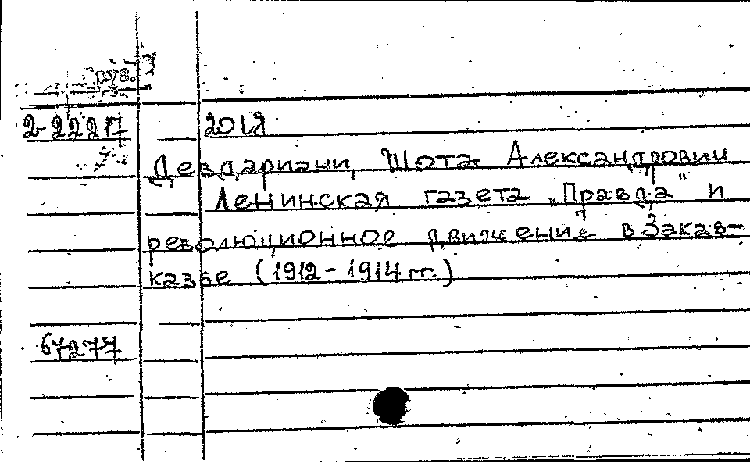 2-2227
2018
Дездариани, Шота Александрович
Ленинская газета „Правда" и
революционное движение в Закав-
казье (1912 - 1914 гг.)
67277